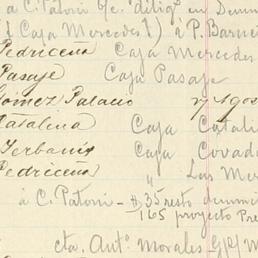 à C. Patoni b/c. "dilig." en Denun
(Caja Mercedes) à P. Barni
Pedriceña Caja Mercedes
Pasaje Caja Pasaje
Gómez Palacio 27 Agos
Catalina Caja Catali
Yerbanis Caja Covad
Pedriceña " Las Me
à C. Patoni - $35 resto denun
165 proyecto Pre
cta. Ant.º Morales G.P/M